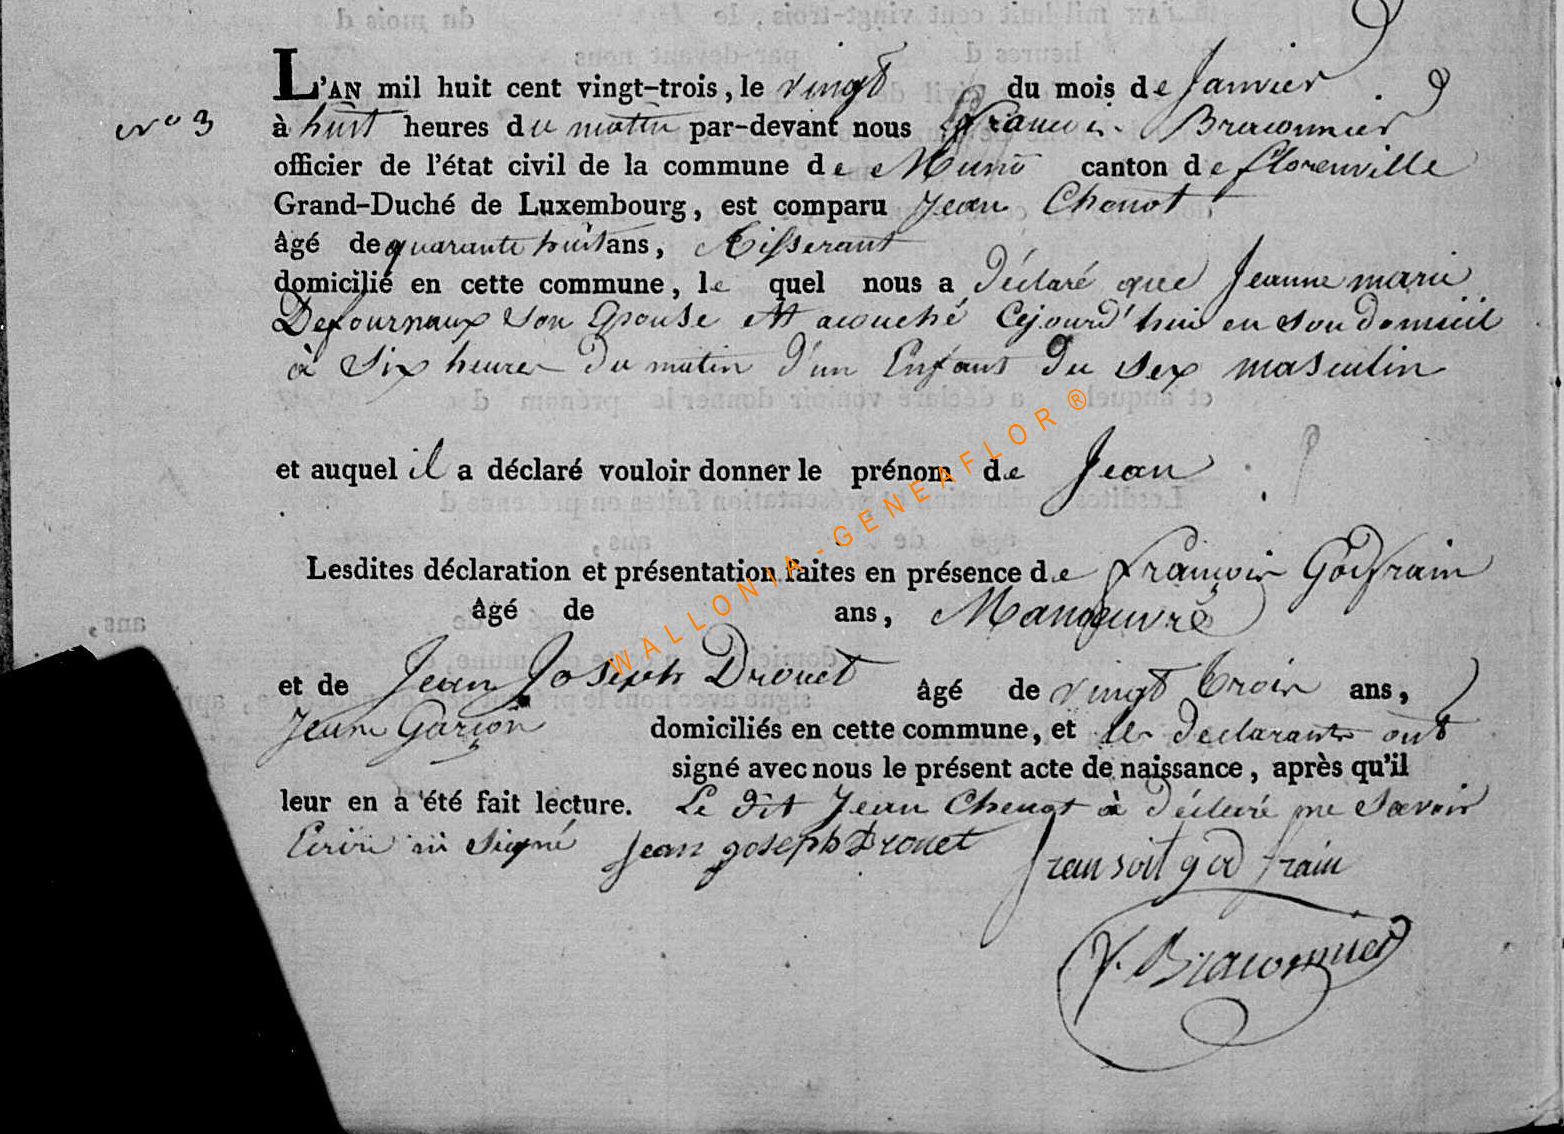 L'AN mil huit cent vingt-trois, le vingt du mois de Janvier
N° 3 à huit heures du matin par-devant nous François Braconnier
officier de l'état civil de la commune de Muno canton de florenville
Grand-Duché de Luxembourg, est comparu Jean Chenot
âgé de quarante huit ans, Tisserant
domicilié en cette commune, le quel nous a déclaré que Jeanne marie
Defournaux Son Epouse Est acouché Cejourd'hui en Son domicil
à Six heures du matin d'un Enfant du sex masculin
et auquel il a déclaré vouloir donner le prénom de Jean.
Lesdites déclaration et présentation faites en présence de François Godfrain
âgé de ans, Manoeuvre
et de Jean Joseph Drouet âgé de vingt trois ans,
Jeune Garçon domiciliés en cette commune, et les déclarants ont
signé avec nous le présent acte de naissance, après qu'il
leur en a été fait lecture. Le dit Jean Chenot à déclaré ne Savoir
Ecrire ni Signé Jean joseph Drouet fransoit god frain
f. Braconnier
WALLONIA-GENEAFLOR ®